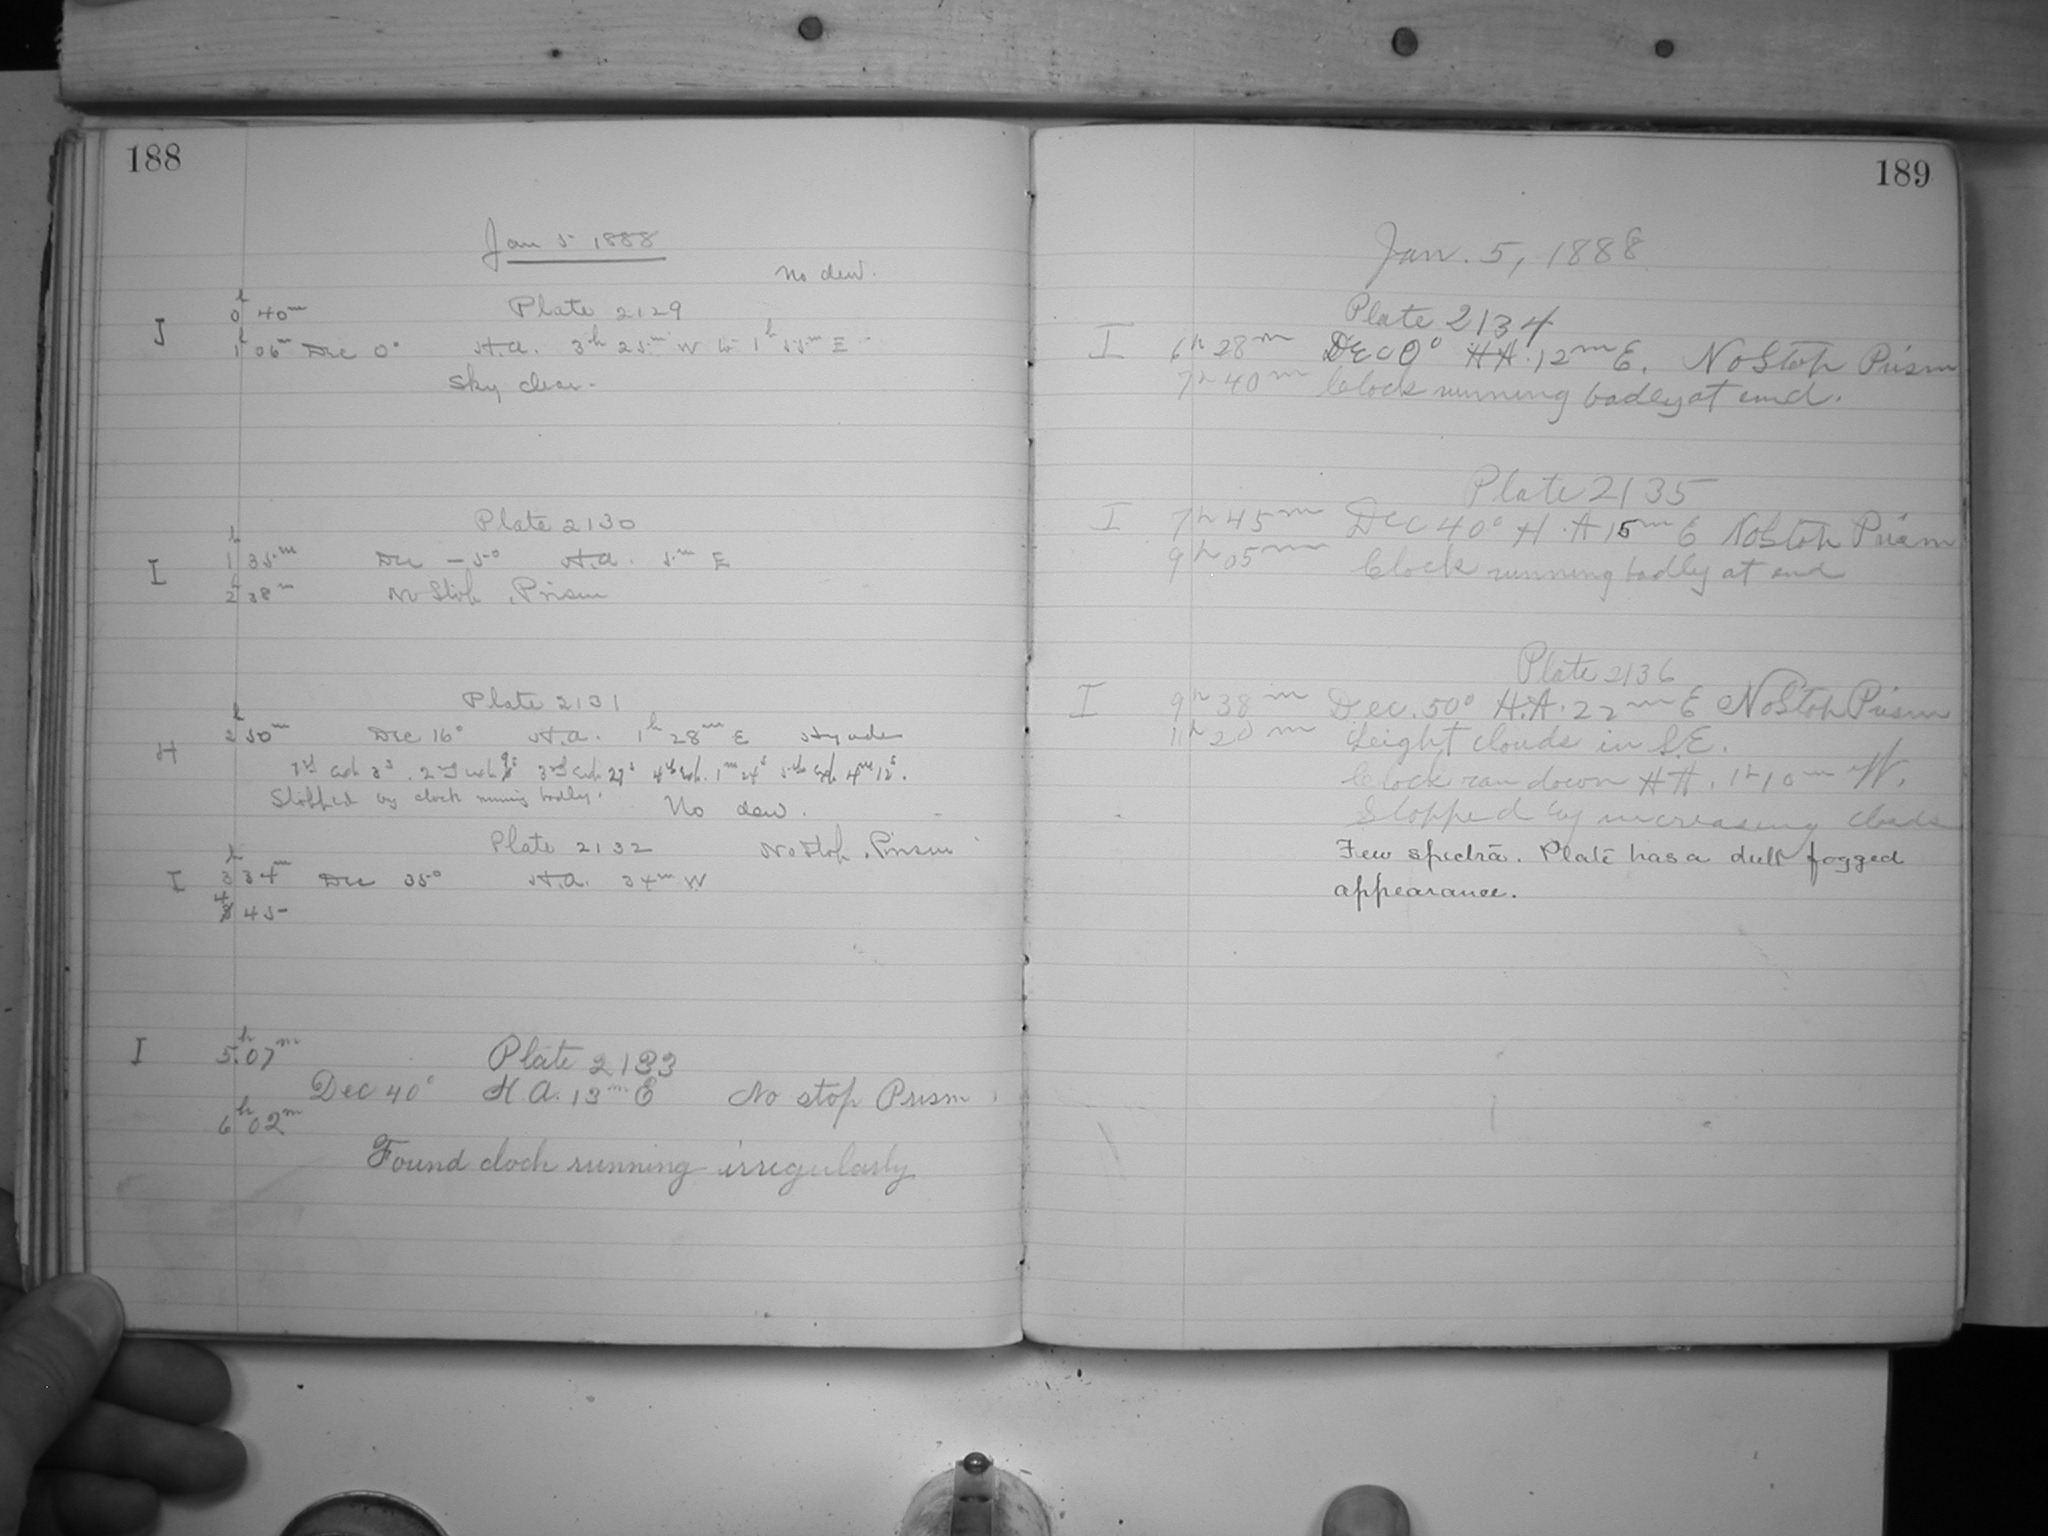 188
Jan 5 1888
No dew.
J 0h 40m Plate 2129
1h 06m Dec 0° H.A. 3h 25m W to 1h 55m E
Sky clear.
Plate 2130
I 1h 35m Dec -5° H.A. 5m E
2h 38m No Stop, Prism
Plate 2131
2h 50m Dec 16° H.A. 1h 28m E
H 1st exp. 3s. 2nd exp. 9s 3rd exp. 27s 4th exp. 1m 24s 5th exp. 4m 12s.
Stopped by clock running badly. No dew.
Plate 2132 No Stop, Prism
I 3h 34m Dec 35° H.A. 34m W
4 45
I 5h 07m Plate 2133
Dec 40° H.A. 13m E No stop Prism
6h 02m
Found clock running irregularly
189
Jan. 5, 1888
Plate 2134
I 6h 28m Dec 0° H.A. 12m E. No Stop Prism
7h 40m Clock running badly at end.
Plate 2135
I 7h 45m Dec 40° H.A 15m E No Stop Prism
9h 05m Clock running badly at end
Plate 2136
I 9h 38m Dec. 50° H.A. 22m E No Stop Prism
11h 20m Light clouds in S.E.
Clock ran down H.A. 1h 10m W.
Stopped by increasing clouds
Few spectra. Plate has a dull fogged
appearance.